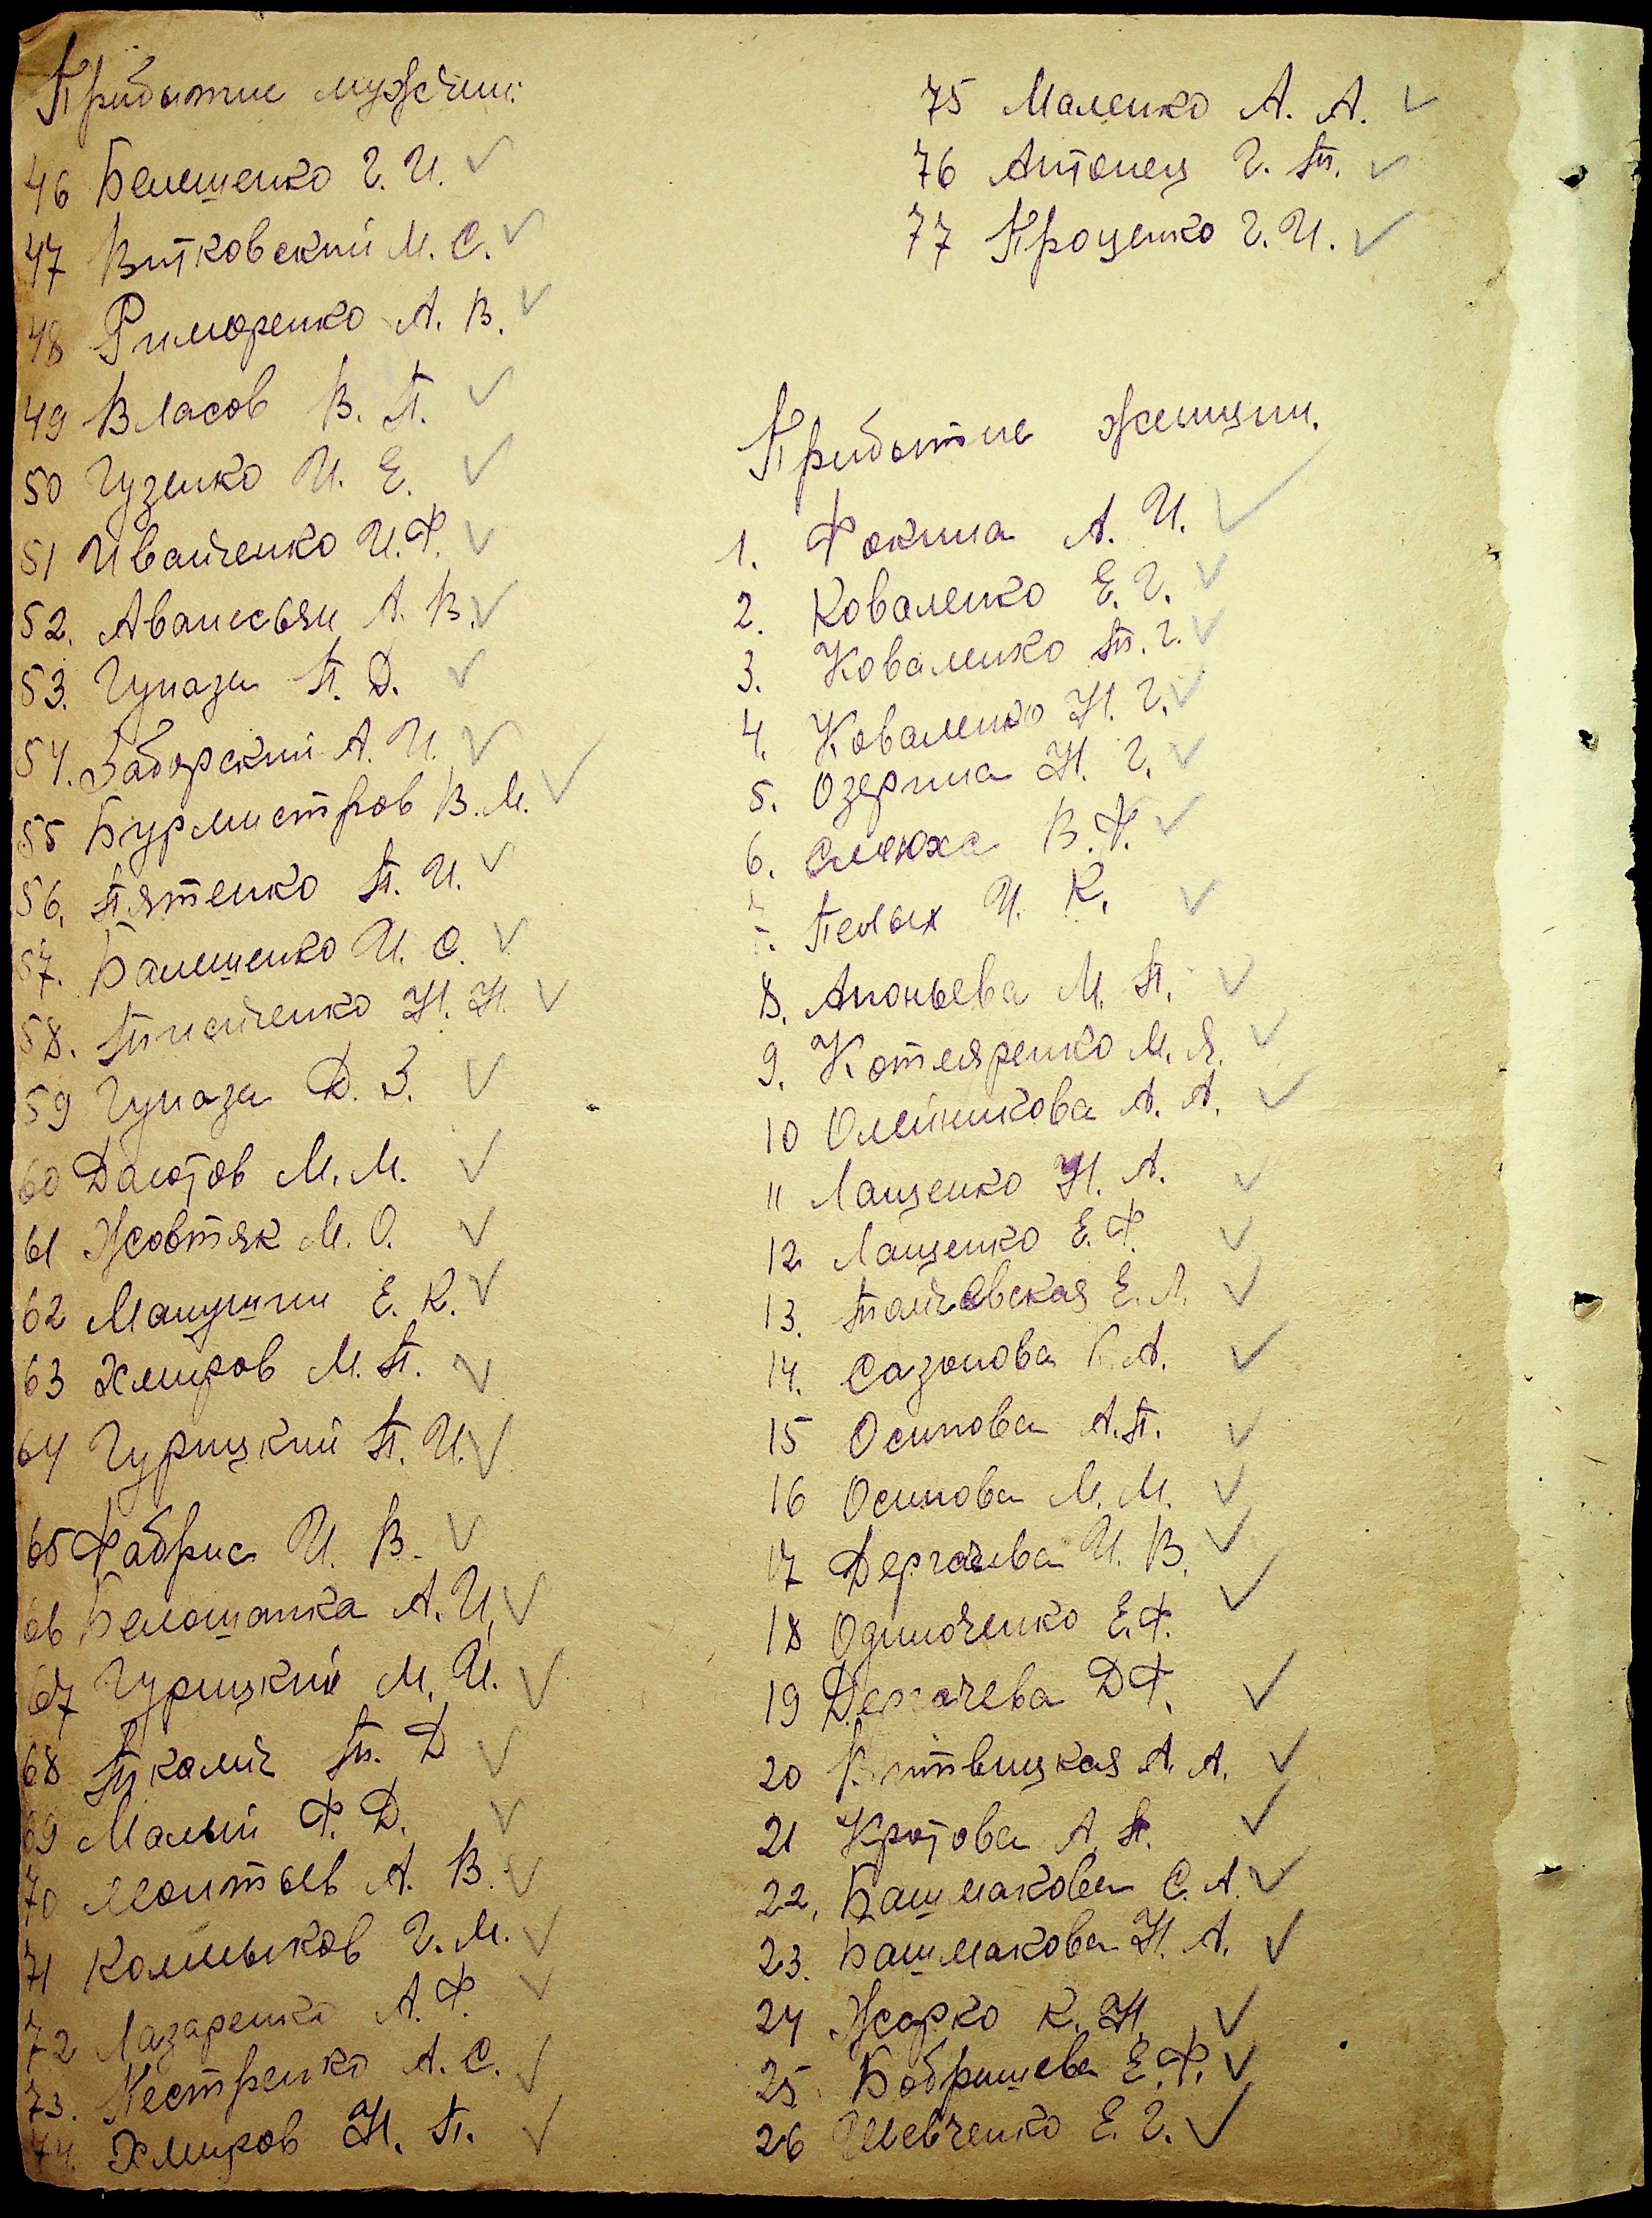 Прибытие мужчин:
46 Белешенко Г. И.
47 Витковский М. С.
48 Риморенко А. В.
49 Власов В. П.
50 Гузенко И. Е.
51 Иванченко И. Ф.
52. Аванесьян А. В.
53. Гуназа П. Д.
54. Заборский А. И.
55 Бурмистров В. М.
56. Пятенко П. И.
57. Балешенко И. С.
58. Тимченко Н. Н.
59 Гуназа Д. З.
60 Далотов М. М.
61 Жовтяк М. О.
62 Манушин Е. К.
63 Хмыров М. П.
64 Гурицкий П. И.
65 Фабрис И. В.
66 Белошапка А. И.
67 Гурицкий М. И.
68 Ткалич Т. Д
69 Малый Ф. Д.
70 Леонтьев А. В.
71 Колмыков Г. М.
72 Лазаренко А. Ф.
73. Нестренко А. С.
74. Хмыров Н. П.
75 Маленко А. А.
76 Антонец Г. Т.
77 Проценко Г. И.
Прибытие женщин.
1. Фокина А. И.
2. Коваленко Е. Г.
3. Коваленко Т. Г.
4. Коваленко Н. Г.
5. Озерина Н. Г.
6. Слюха В. Ф.
7. Пелых И. К.
8. Ановьева М. П.
9. Котляренко М. Я.
10 Олейникова А. А.
11 Лащенко Н. А.
12 Лащенко Е. Ф.
13. Тайчевская Е. Л.
14. Сазонова А.
15 Осипова А. П.
16 Осипова М. М.
17 Дергачева И. В.
18 Одиноченко Е. Ф.
19 Дергачева Д Ф.
20 Витвицкая А. А.
21 Кротова А. П.
22. Башмакова С. А.
23. Башмакова Н. А.
24 Жарко К. Н.
25 Бобрышева Е. Ф.
26 Шевченко Е. Г.